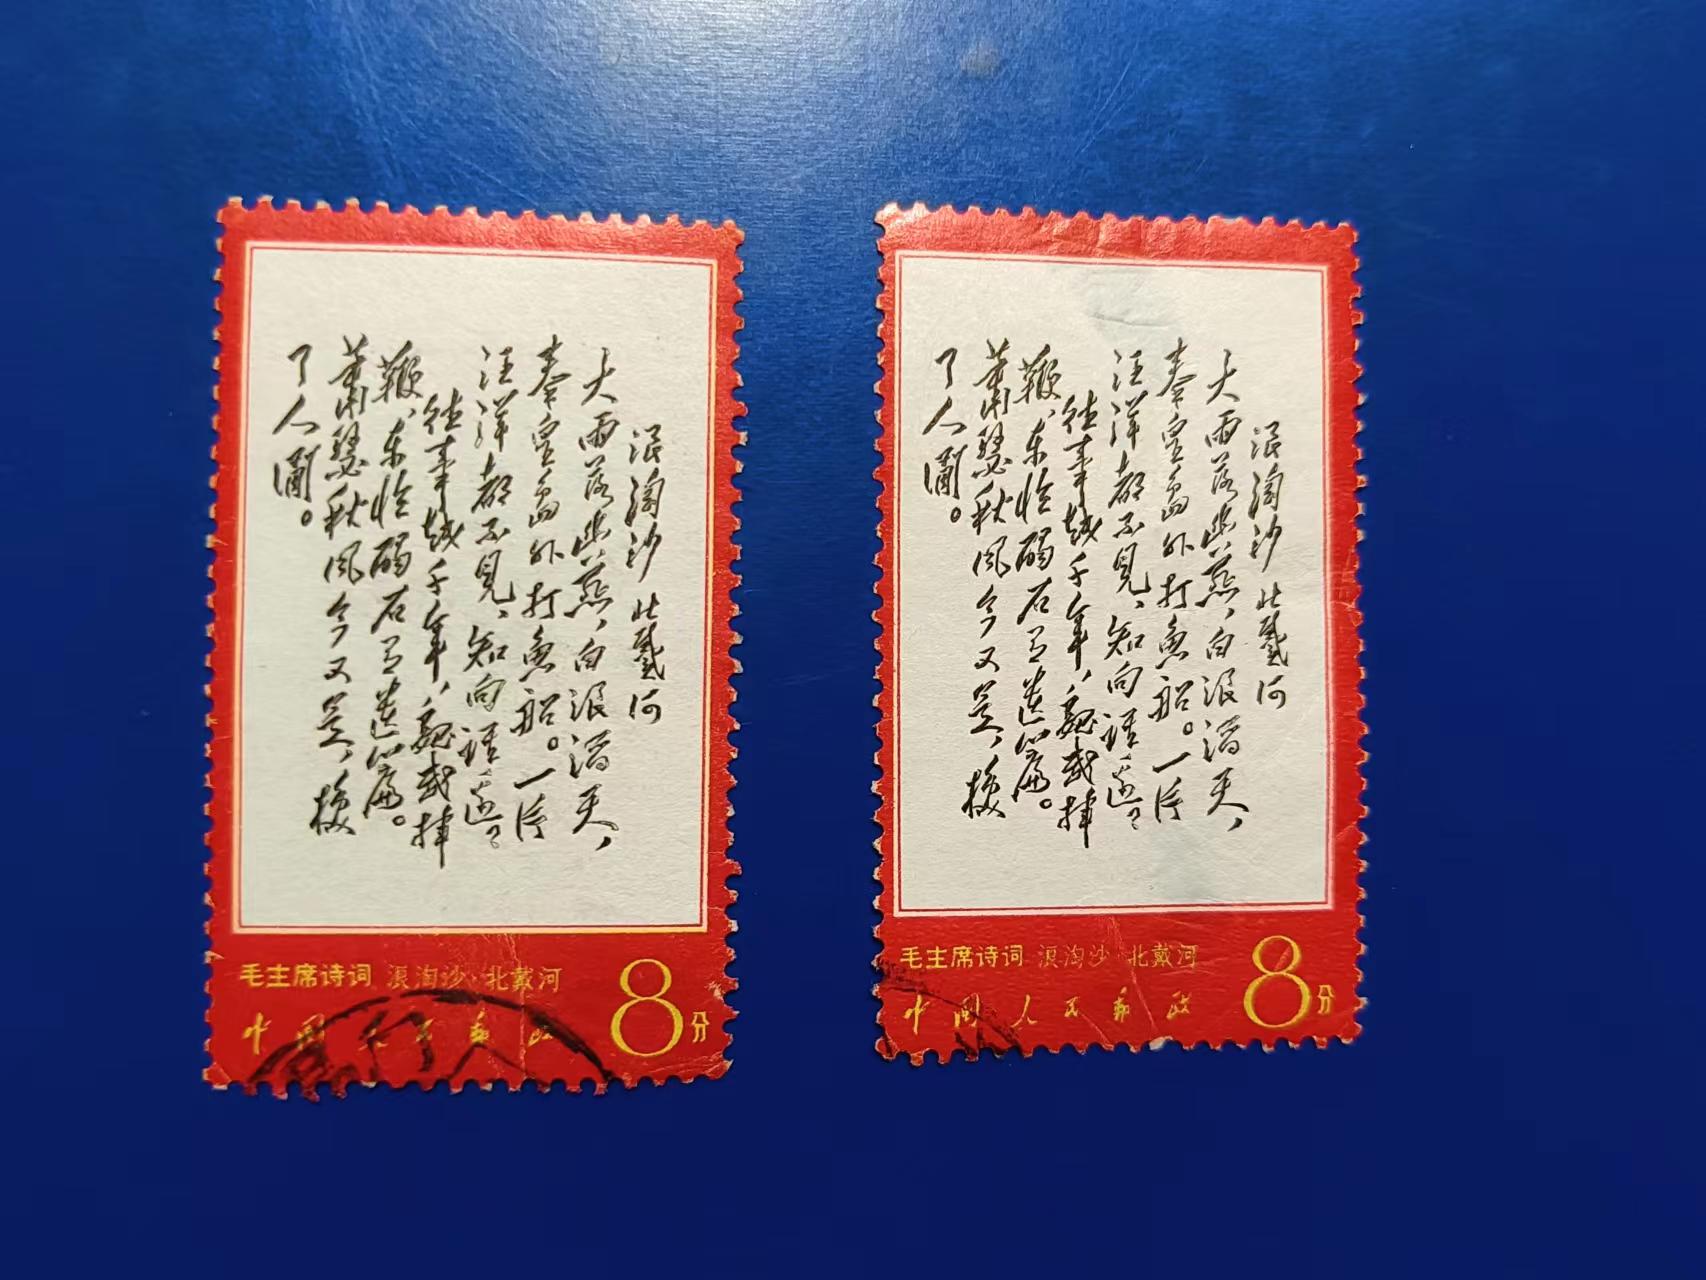 浪淘沙 北戴河
大雨落幽燕,白浪滔天,
秦皇島外打魚船。一片
汪洋都不見,知向誰邊?
往事越千年,魏武揮
鞭,東臨碣石有遺篇。
蕭瑟秋風今又是,換
了人間。
毛主席诗词 浪淘沙·北戴河
中国人民邮政
8分
浪淘沙 北戴河
大雨落幽燕,白浪滔天,
秦皇島外打魚船。一片
汪洋都不見,知向誰邊?
往事越千年,魏武揮
鞭,東臨碣石有遺篇。
蕭瑟秋風今又是,換
了人間。
毛主席诗词 浪淘沙·北戴河
中国人民邮政
8分